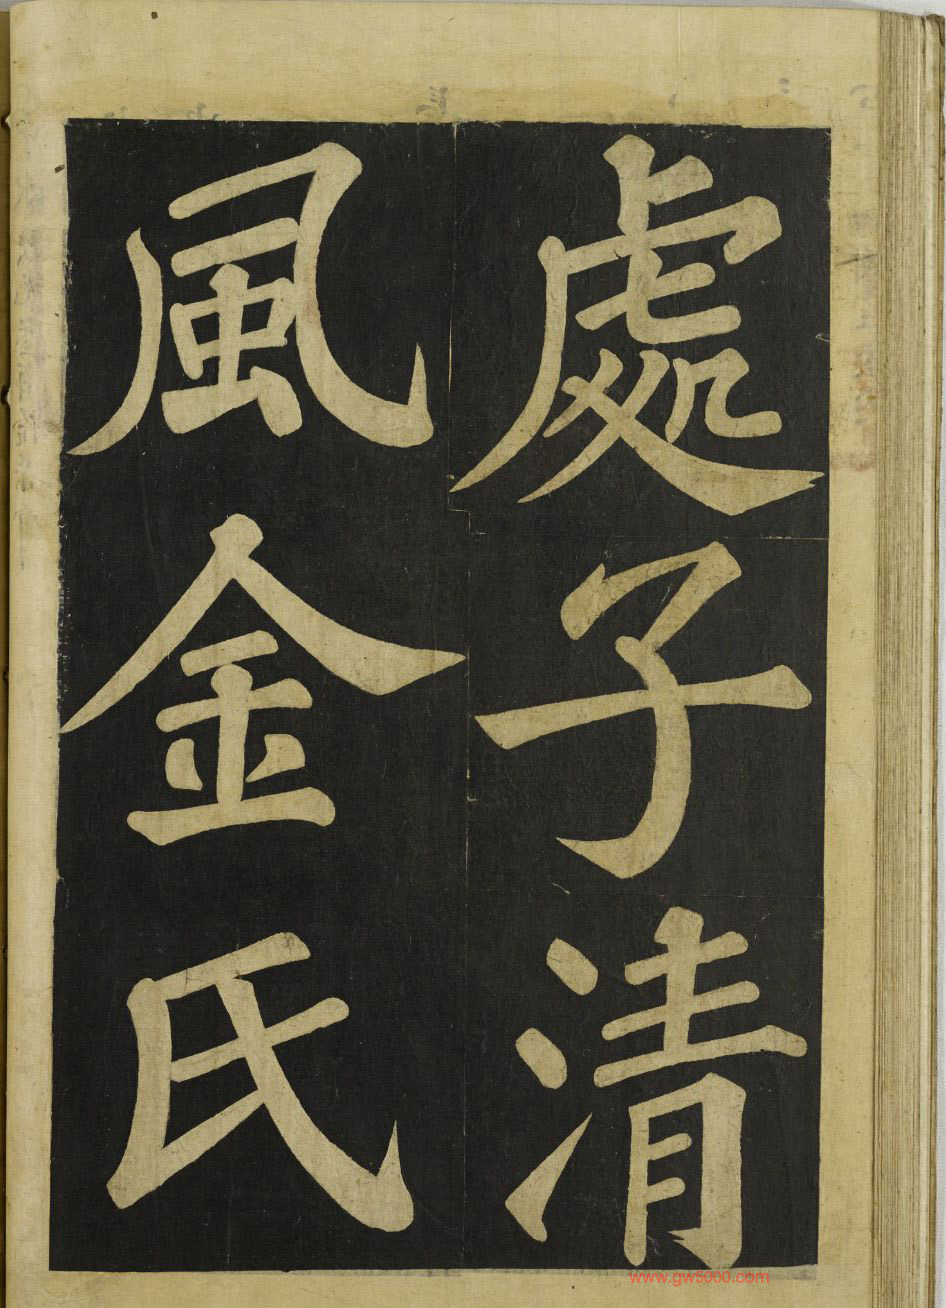 處子清
風金氏
www.gw5000.com